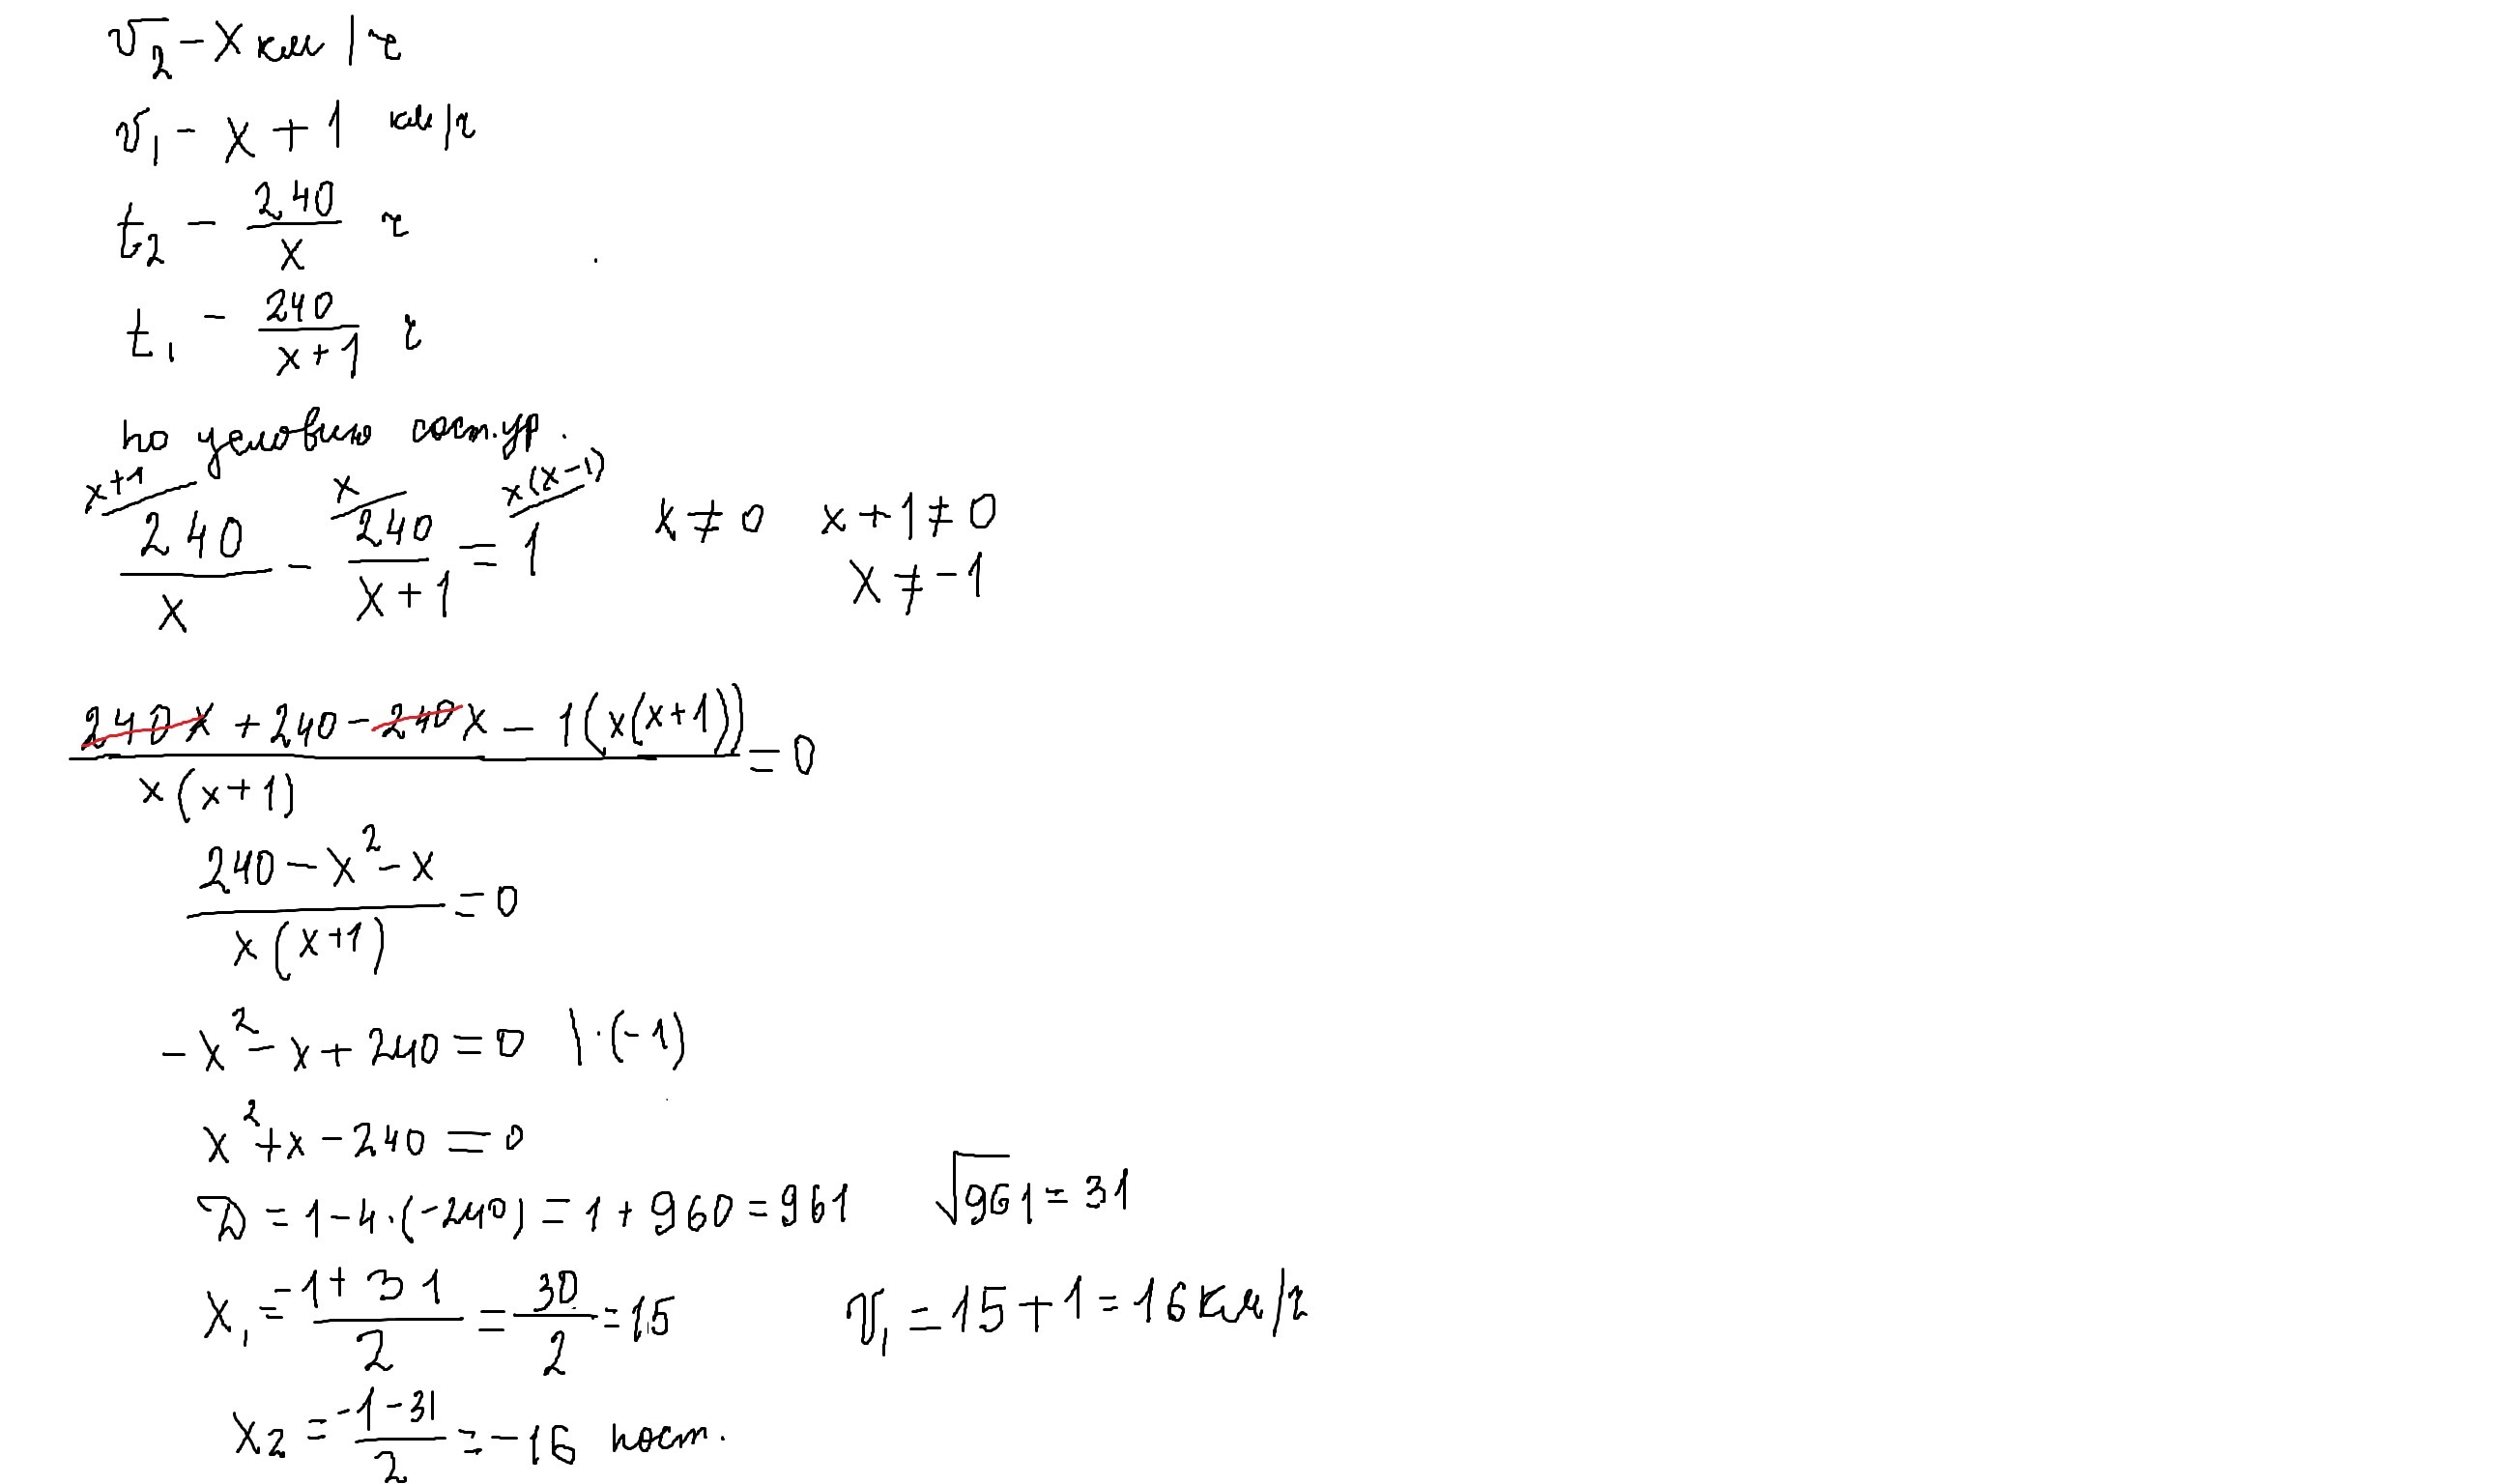 v₂ - x км/ч
v₁ - x + 1 км/ч
t₂ - 240/x ч
t₁ - 240/(x+1) ч
по условию сост. ур.
x+1 x x(x-1)
240/x - 240/(x+1) = 1 x ≠ 0 x + 1 ≠ 0
x ≠ -1
(240x + 240 - 240x - 1(x(x+1)))/(x(x+1)) = 0
(240 - x² - x)/(x(x+1)) = 0
-x² - x + 240 = 0 |·(-1)
x² + x - 240 = 0
D = 1 - 4·(-240) = 1 + 960 = 961 √961 = 31
x₁ = (-1 + 31)/2 = 30/2 = 15 v₁ = 15 + 1 = 16 км/ч
x₂ = (-1 - 31)/2 = -16 пост.